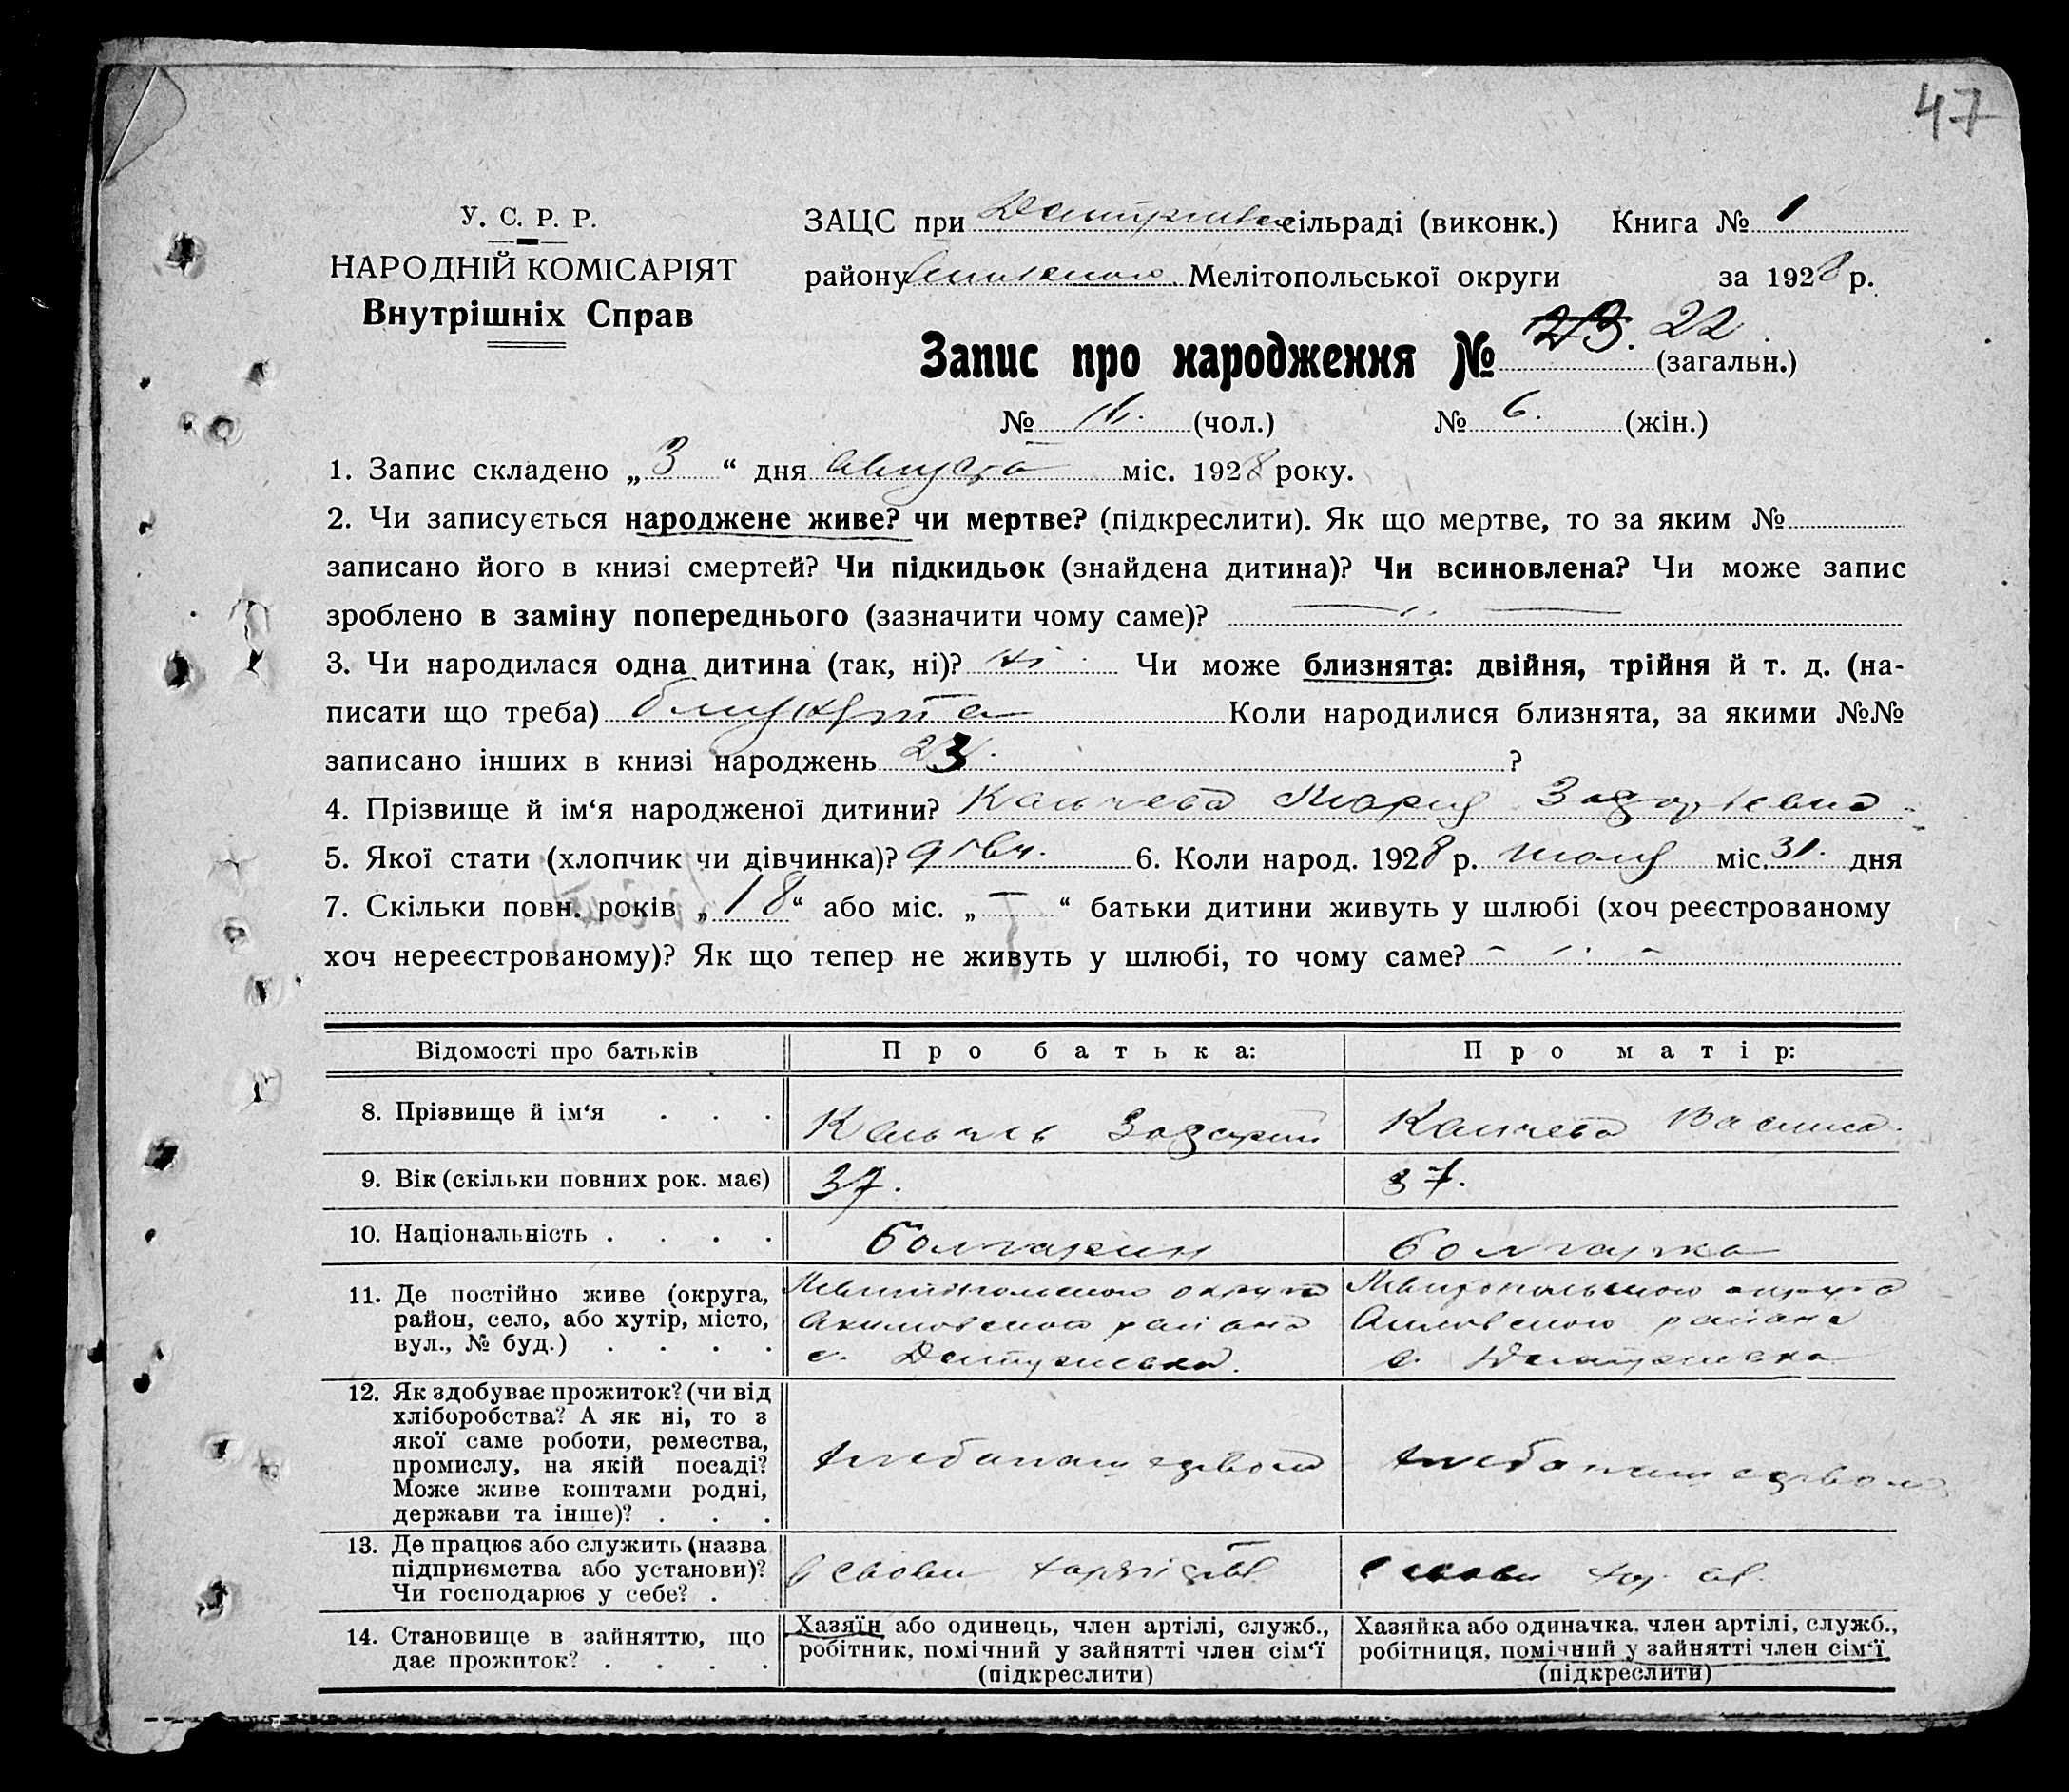 47
У. С. Р. Р.
НАРОДНІЙ КОМІСАРІЯТ
Внутрішніх Справ
ЗАЦС при Дмитриівск сільраді (виконк.) Книга № 1
району Мелітопольської округи за 1928 р.
Запис про народження № 23. 22 (загальн.)
№ (чол.) № 6. (жін.)
1. Запис складено „ 3 “ дня августа міс. 1928 року.
2. Чи записується народжене живе? чи мертве? (підкреслити). Як що мертве, то за яким №
записано його в книзі смертей? Чи підкидьок (знайдена дитина)? Чи всиновлена? Чи може запис
зроблено в заміну попереднього (зазначити чому саме)?
3. Чи народилася одна дитина (так, ні)? ні Чи може близнята: двійня, трійня й т. д. (на-
писати що треба) близнята Коли народилися близнята, за якими №№
записано інших в книзі народжень 23 ?
4. Прізвище й ім‘я народженої дитини? Калчева Мария Захарьевна
5. Якої стати (хлопчик чи дівчинка)? дівч. 6. Коли народ. 1928 р. июля міс. 31. дня
7. Скільки повн. років „ 18 “ або міс. „ “ батьки дитини живуть у шлюбі (хоч реєстрованому
хоч нереєстрованому)? Як що тепер не живуть у шлюбі, то чому саме?
Відомості про батьків Про батька: Про матір:
8. Прізвище й ім‘я . . . Кальчев Захарий Калчева Васииса
9. Вік (скільки повних рок. має) 37. 37.
10. Національність . . . . болгарин болгарка
11. Де постійно живе (округа, Мелитопольского округа Мелитопольского округа
район, село, або хутір, місто, Акимовского района Акимовского района
вул., № буд.) . . . . с. Дмитриевка. с. Дмитриевка
12. Як здобуває прожиток? (чи від
хліборобства? А як ні, то з
якої саме роботи, ремества,
промислу, на якій посаді? хлебопашеством хлебопашеством
Може живе коштами родні,
держави та інше)? . . .
13. Де працює або служить (назва
підприємства або установи)? в своем
Чи господарює у себе? .
14. Становище в зайняттю, що Хазяїн або одинець, член артілі, служб., Хазяйка або одиначка, член артілі, служб.,
дає прожиток? . . . . робітник, помічний у зайнятті член сім‘ї робітниця, помічний у зайнятті член сім‘ї
(підкреслити) (підкреслити)